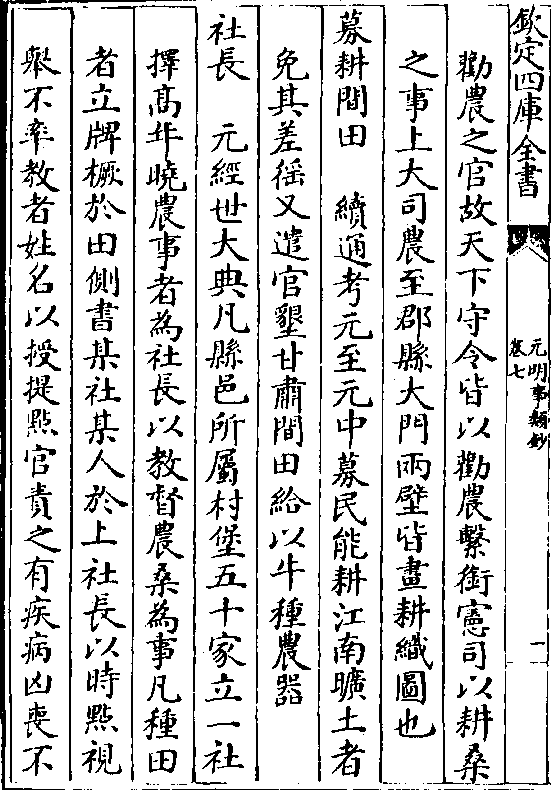 欽定四庫全書
元明事類鈔
卷七
一
勸農之官故天下守令皆以勸農繫銜憲司以耕桑
之事上大司農至郡縣大門兩壁皆畫耕織圖也
募耕間田　續通考元至元中募民能耕江南曠土者
免其差徭又遣官墾甘肅間田給以牛種農器
社長　元經世大典凡縣邑所屬村堡五十家立一社
擇髙年曉農事者為社長以教督農桑為事凡種田
者立牌橛於田側書某社某人於上社長以時㸃視
㸔不率教者姓名以授提㸃官責之有疾病凶喪不